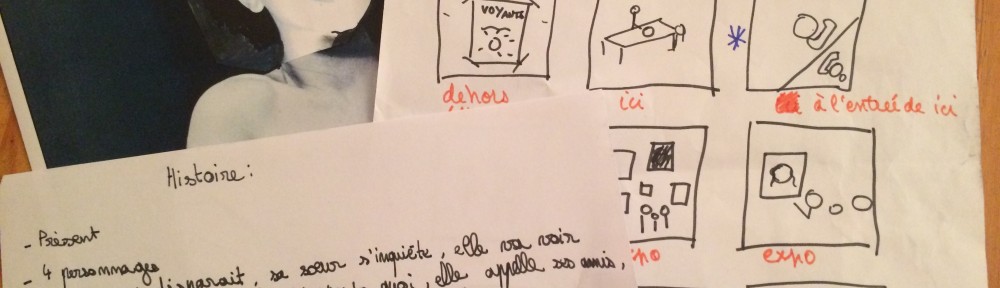 VOYANTE
dehors
ici
à l'entrée de ici
Histoire :
- Présent
- 4 personnages
disparait, sa sœur s'inquiète, elle va voir
quoi, elle appelle ses amis,
expo